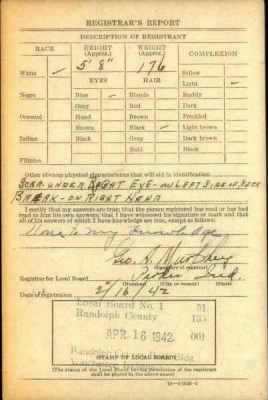 REGISTRAR'S REPORT
DESCRIPTION OF REGISTRANT
RACE
HEIGHT (Approx.)
WEIGHT (Approx.)
COMPLEXION
5' 8"
176
White ✓
Sallow
EYES
HAIR
Light ✓
Negro
Blue ✓
Blonde
Ruddy
Gray
Red
Dark
Oriental
Hazel
Brown
Freckled
Brown
Black ✓
Light brown
Indian
Black
Gray
Dark brown
Bald
Black
Filipino
Other obvious physical characteristics that will aid in identification
SCAR UNDER RIGHT EYE - ON LEFT SIDE OF NECK
BREAK - ON RIGHT HAND
I certify that my answers are true; that the person registered has read or has had
read to him his own answers; that I have witnessed his signature or mark and that
all of his answers of which I have knowledge are true, except as follows:
None to my knowledge
Geo. A.
(Signature of registrar)
Registrar for Local Board
Ind.
Date of registration 2/16/42
Local Board No. 1 51
Randolph County 135
APR 16 1942 001
Randolph
Winchester, Indiana
(STAMP OF LOCAL BOARD)
(The stamp of the Local Board having jurisdiction of the registrant
shall be placed in the above space)